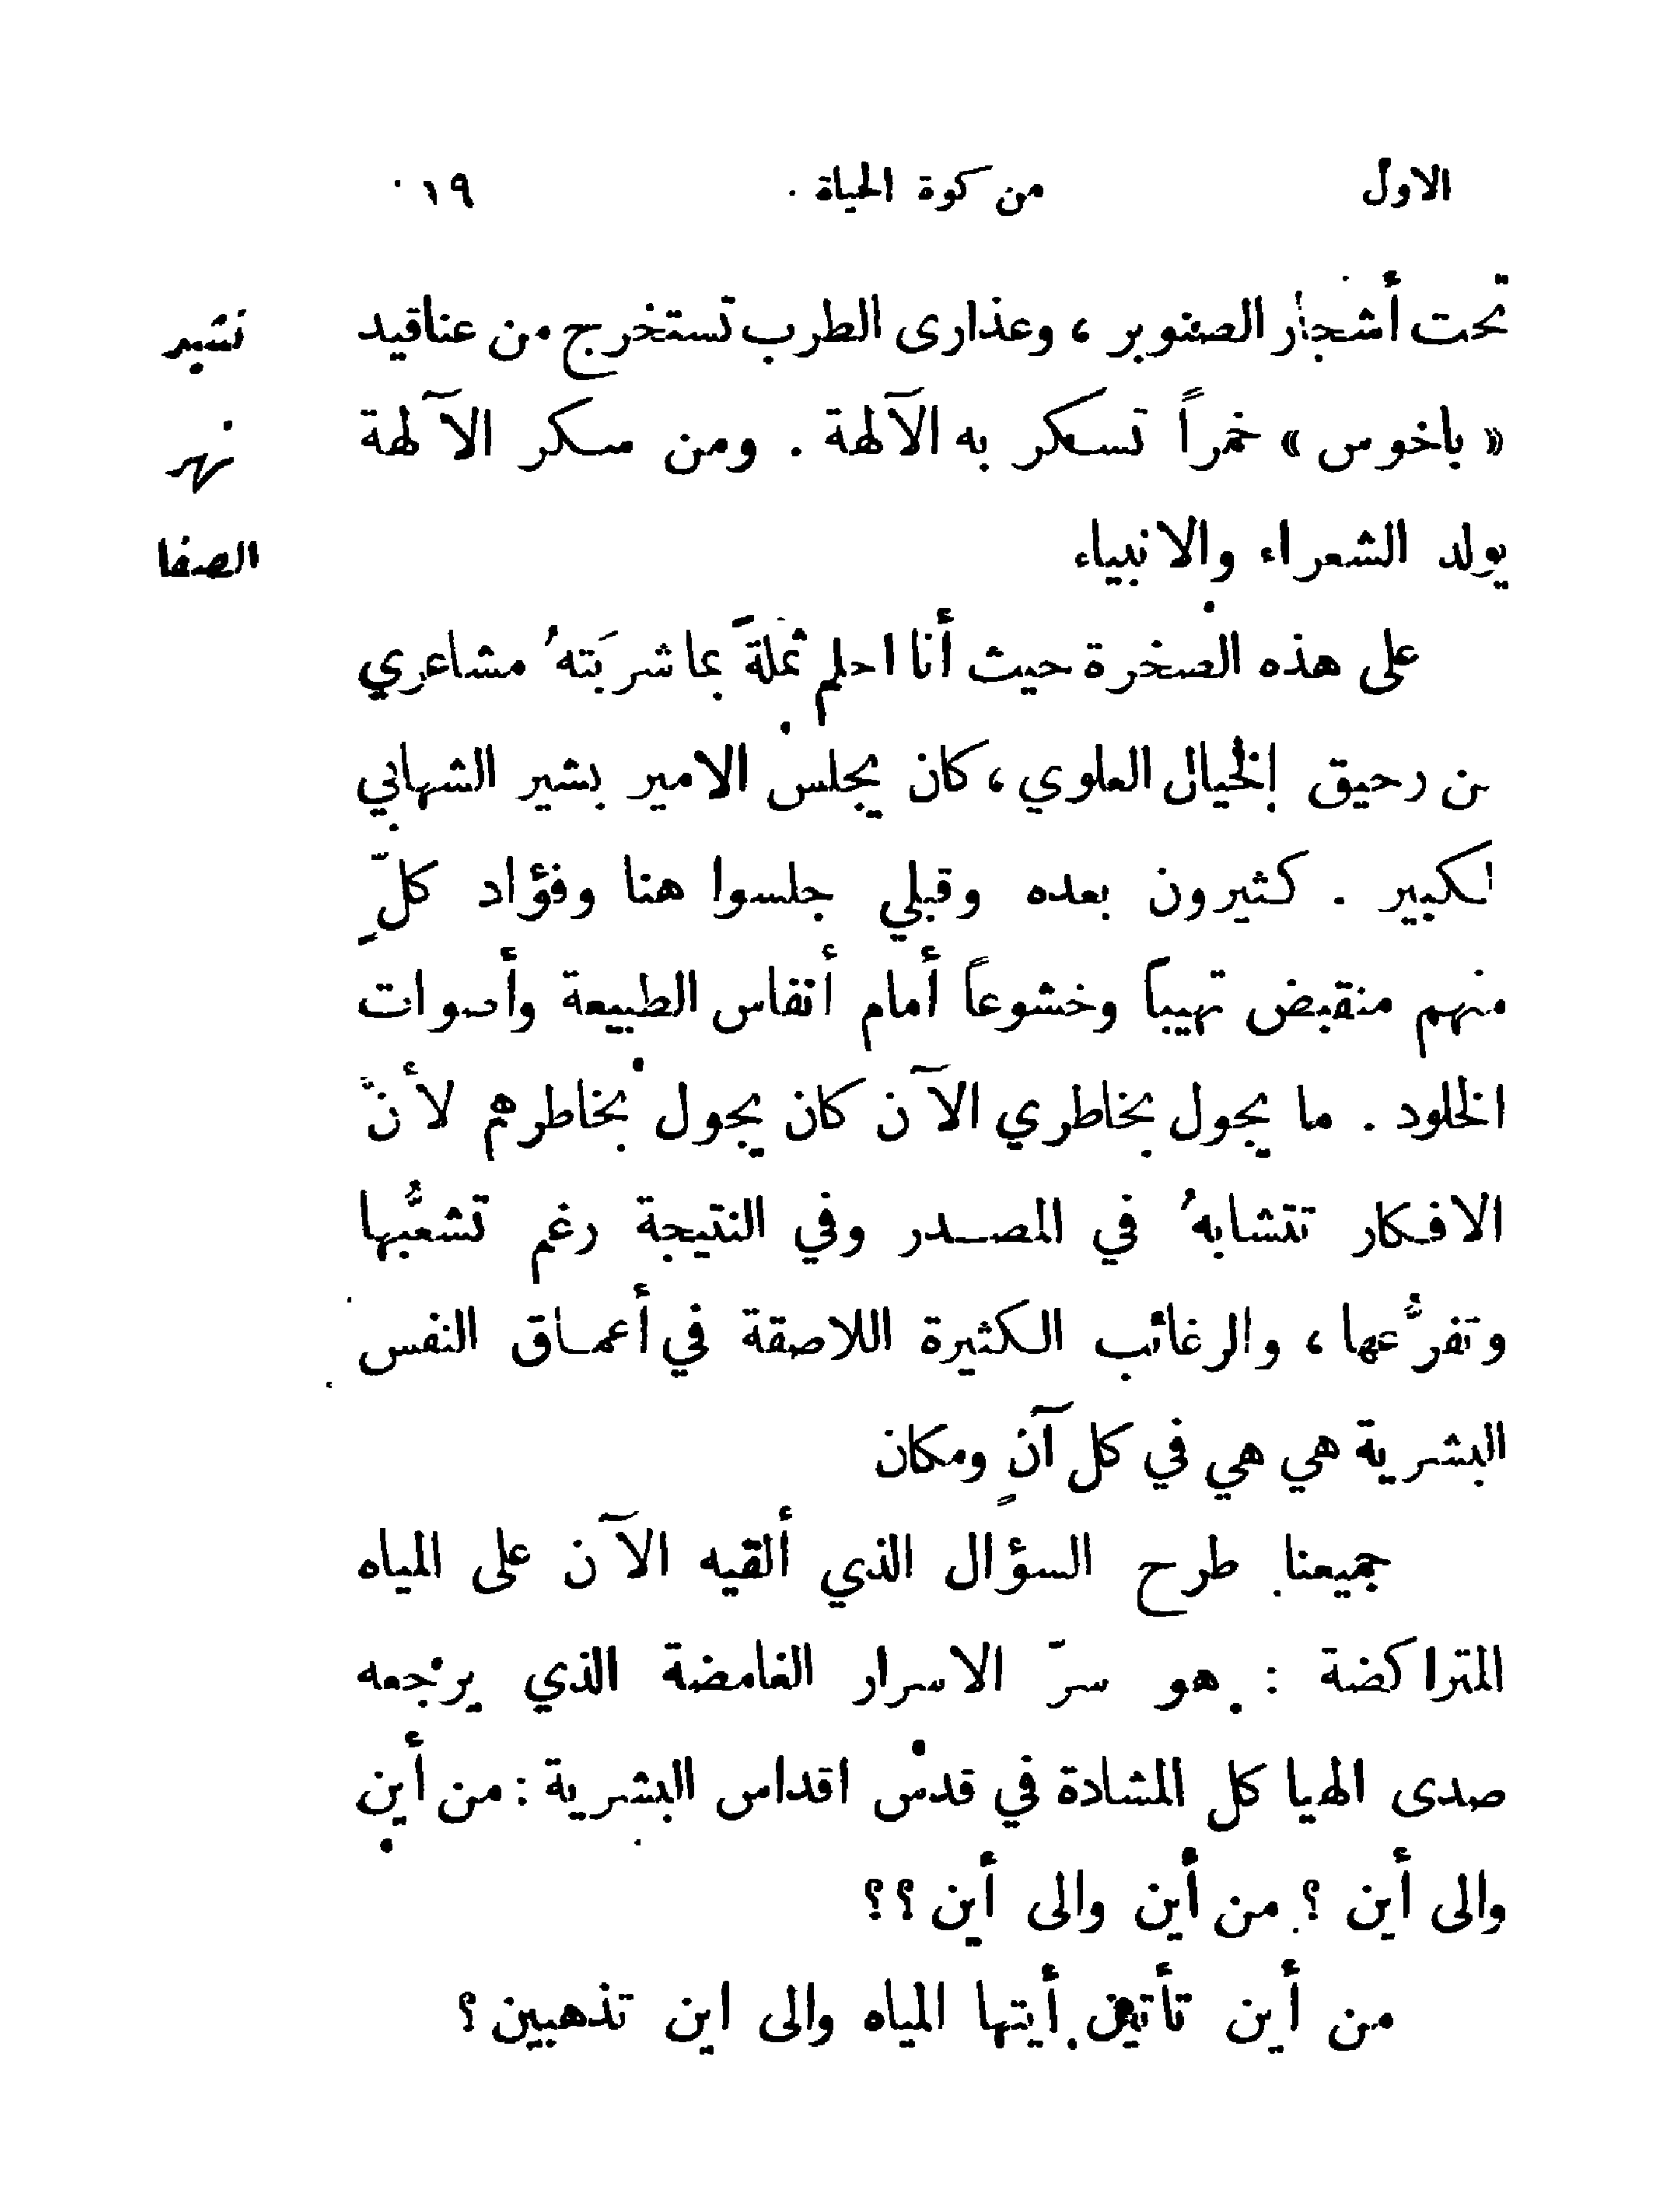 الاول من كوة الحياة ١٩
تحت أشجار الصنوبر ، وعذارى الطرب تستخرج من عناقيد
« باخوس » خمراً تسكر به الآلهة . ومن سكر الآلهة
يولد الشعراء والانبياء
على هذه الصخرة حيث أنا احلم ثملةَ بما شربَتهُ مشاعري
من رحيق الخيال العلوي ، كان يجلس الامير بشير الشهابي
الكبير . كثيرون بعده وقبلي جلسوا هنا وفؤاد كلّ
منهم منقبض تهيباً وخشوعاً أمام أنفاس الطبيعة وأصوات
الخلود . ما يجول بخاطري الآن كان يجول بخاطرهم لأنَّ
الافكار تتشابهُ في المصدر وفي النتيجة رغم تشعُّبها
وتفرُّعها ، والرغائب الكثيرة اللاصقة في أعماق النفس
البشرية هي هي في كل آنٍ ومكان
جميعنا طرح السؤال الذي ألقيه الآن على المياه
المتراكضة : هو سرّ الاسرار الغامضة الذي يرجعه
صدى الهياكل المشادة في قدس اقداس البشرية : من أين
والى أين ؟ من أين والى أين ؟؟
من أين تأتين أيتها المياه والى اين تذهبين ؟
نشيد
نهر
الصفا